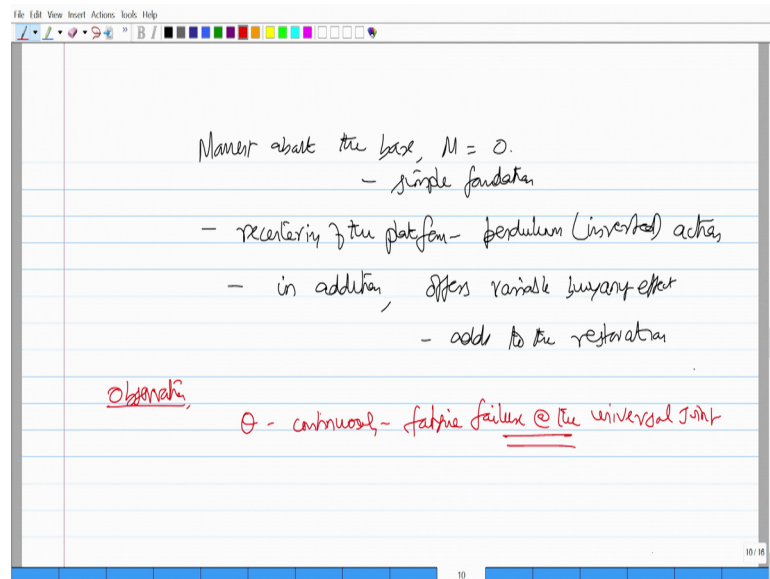 File Edit View Insert Actions Tools Help
B I
Moment about the base, M = 0.
- simple foundation
- recentering of the platform - pendulum (inverted) action
- in addition, offers variable buoyancy effect
- adds to the restoration
Observation,
θ - continuous, - fatigue failure @ the universal joint
10 / 16
10